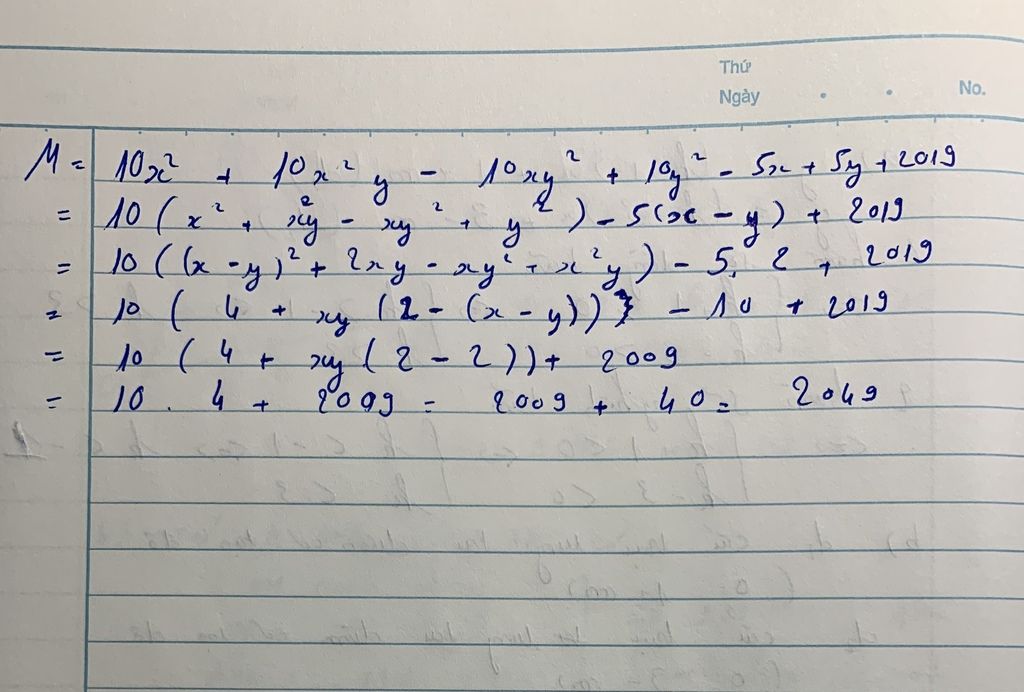 Thứ
Ngày . . No.
M = 10x² + 10x²y - 10xy² + 10y² - 5x + 5y + 2019
= 10(x² + x²y - xy² + y²) - 5(x - y) + 2019
= 10((x - y)² + 2xy - xy² + x²y) - 5. 2 + 2019
= 10(4 + xy(2 - (x - y))) - 10 + 2019
= 10(4 + xy(2 - 2)) + 2009
= 10 . 4 + 2009 = 2009 + 40 = 2049